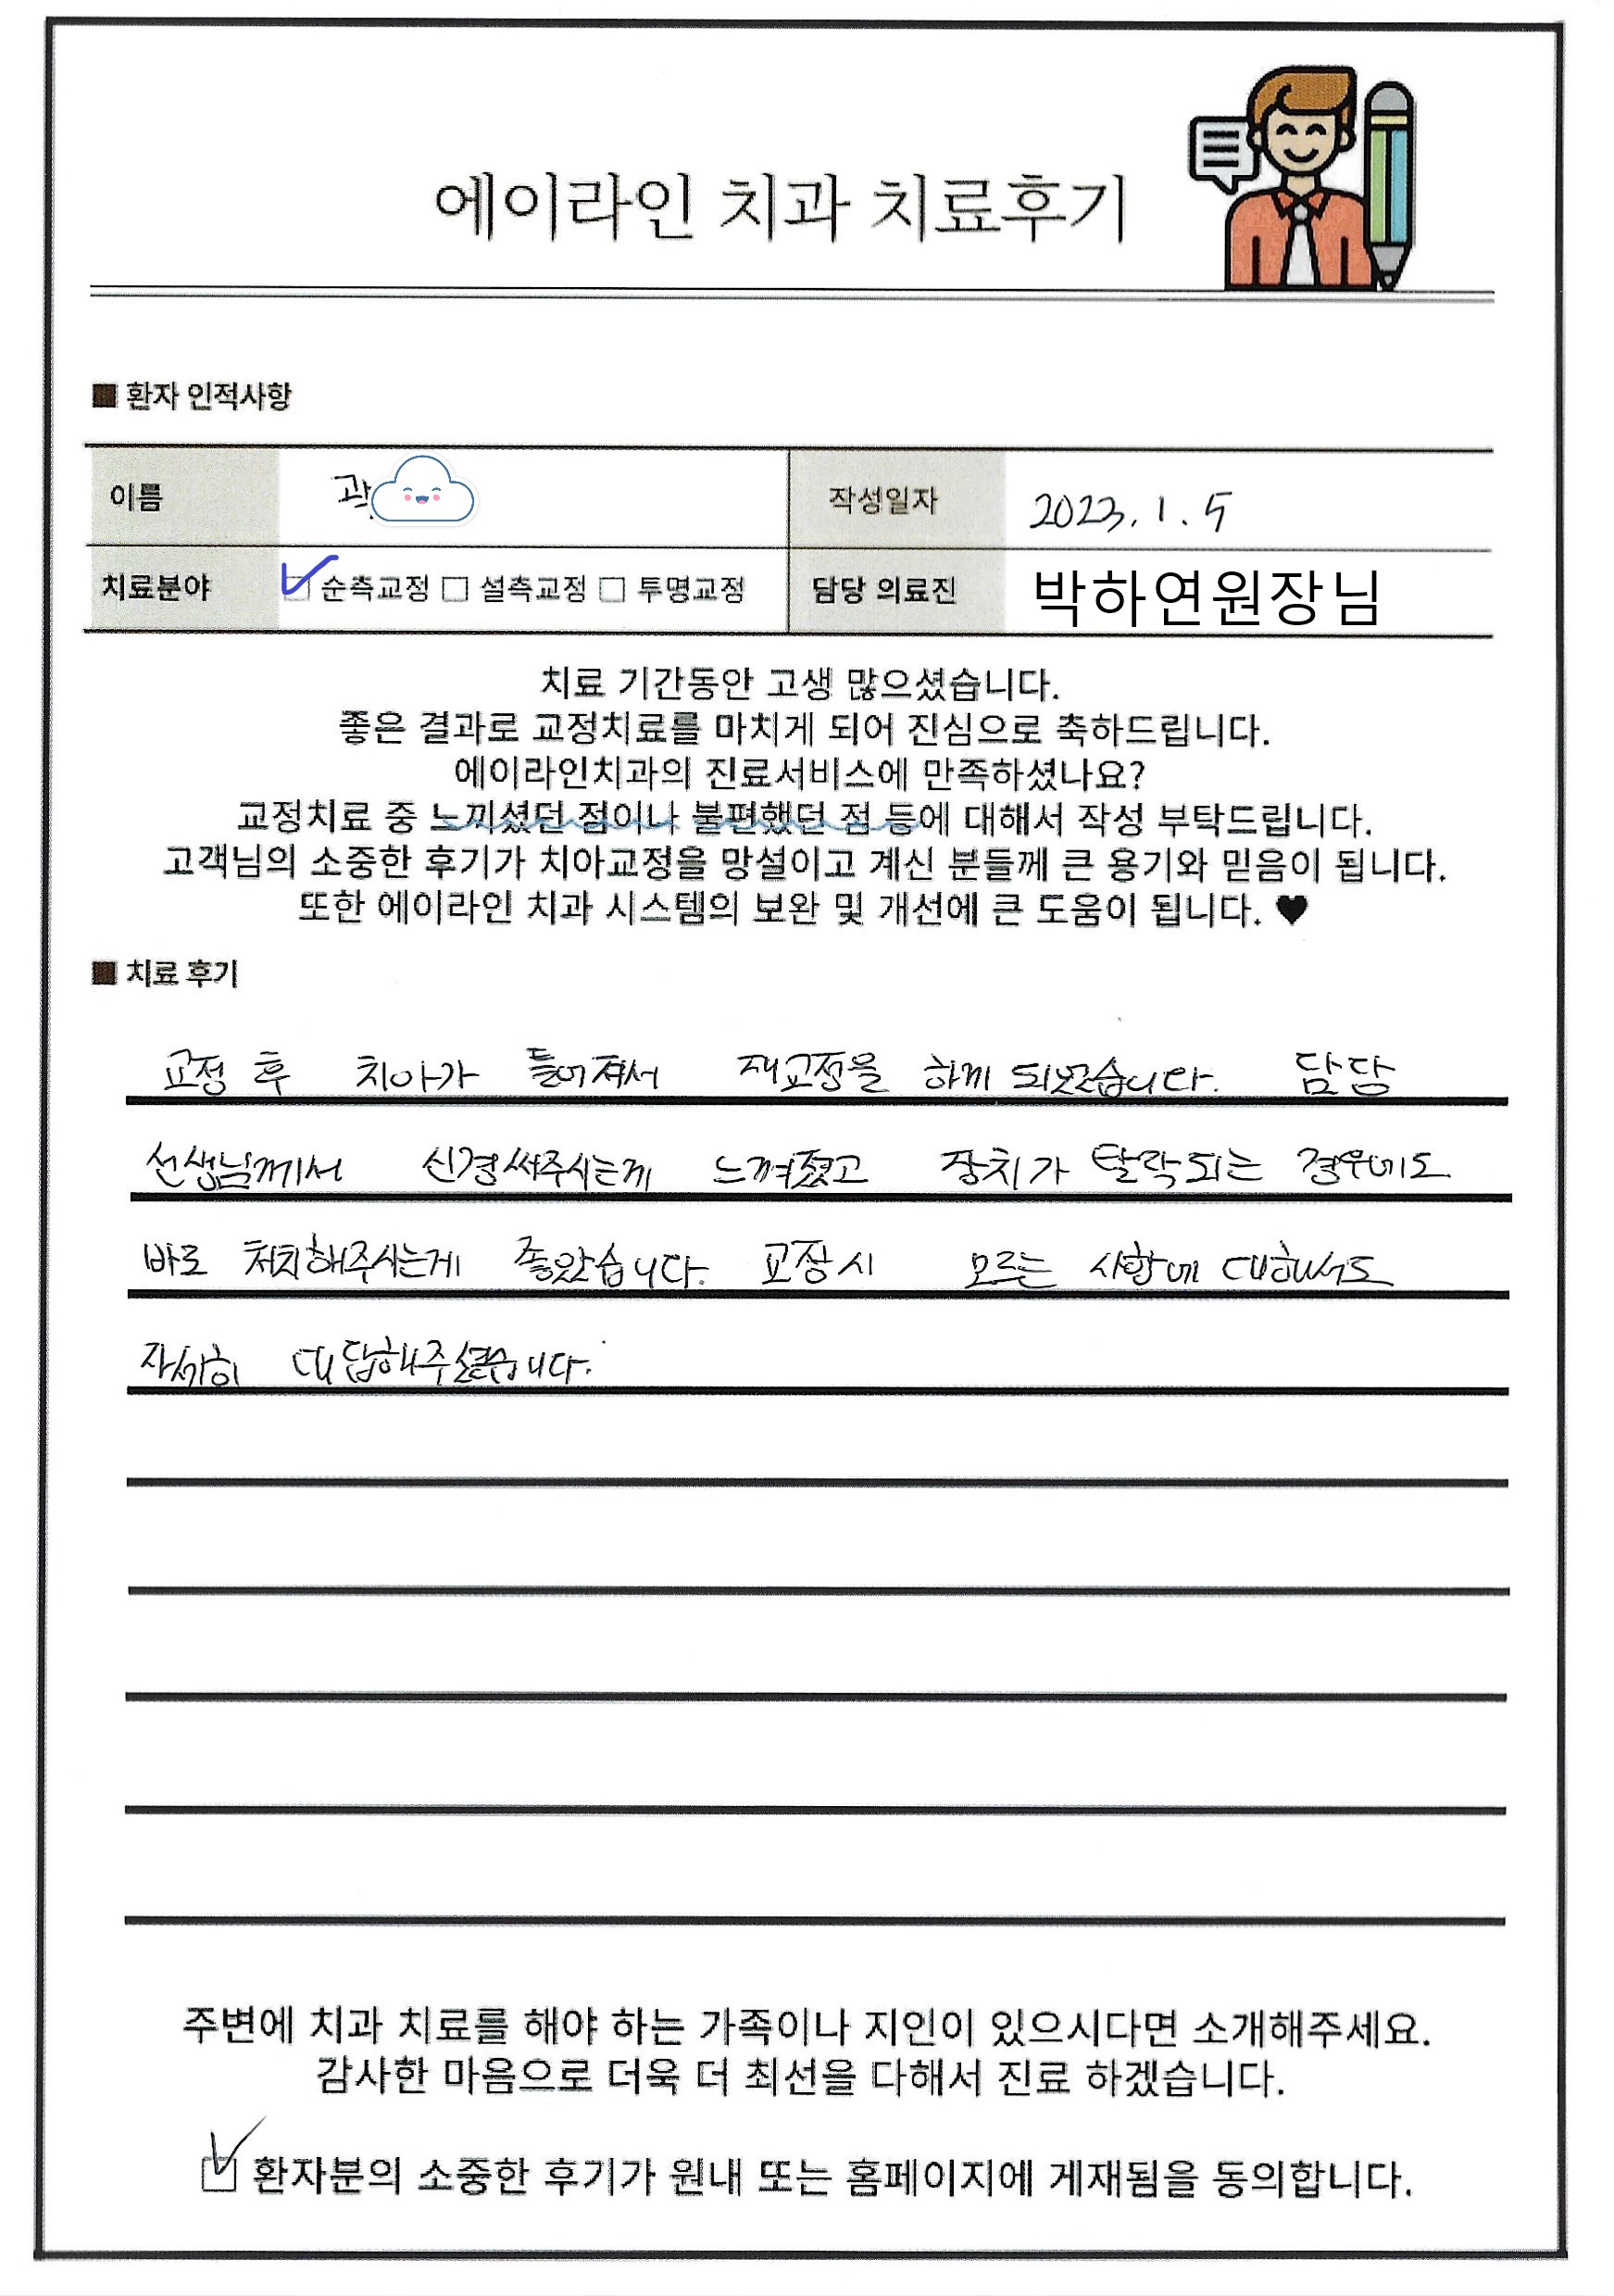 에이라인 치과 치료후기
■ 환자 인적사항
이름 곽 작성일자 2023. 1. 5
치료분야 ☑ 순측교정 □ 설측교정 □ 투명교정 담당 의료진 박하연원장님
치료 기간동안 고생 많으셨습니다.
좋은 결과로 교정치료를 마치게 되어 진심으로 축하드립니다.
에이라인치과의 진료서비스에 만족하셨나요?
교정치료 중 느끼셨던 점이나 불편했던 점 등에 대해서 작성 부탁드립니다.
고객님의 소중한 후기가 치아교정을 망설이고 계신 분들께 큰 용기와 믿음이 됩니다.
또한 에이라인 치과 시스템의 보완 및 개선에 큰 도움이 됩니다. ♥
■ 치료 후기
교정 후 치아가 틀어져서 재교정을 하게 되었습니다. 담당
선생님께서 신경써주시는게 느껴졌고 장치가 탈락되는 경우에도
바로 처치해주시는게 좋았습니다. 교정시 모르는 사항에 대해서도
자세히 대답해주셨습니다.
주변에 치과 치료를 해야 하는 가족이나 지인이 있으시다면 소개해주세요.
감사한 마음으로 더욱 더 최선을 다해서 진료 하겠습니다.
☑ 환자분의 소중한 후기가 원내 또는 홈페이지에 게재됨을 동의합니다.